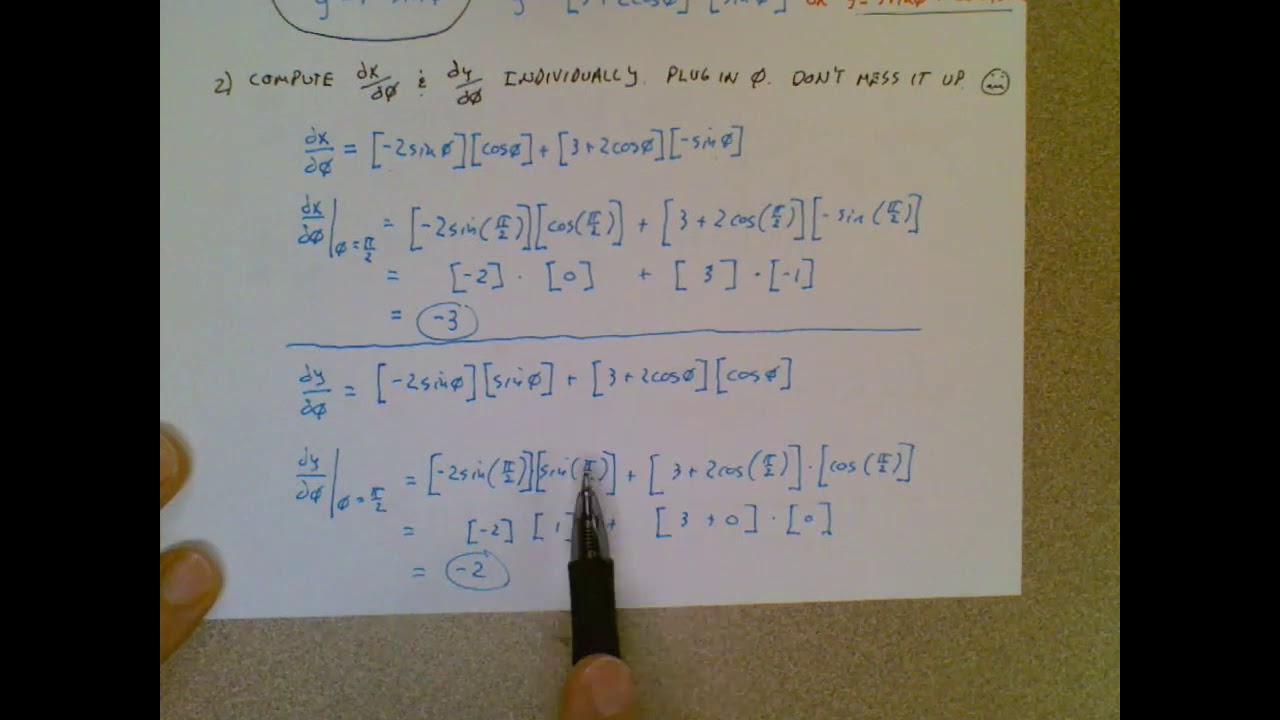 2) COMPUTE dx/dø & dy/dø INDIVIDUALLY. PLUG IN ø. DON'T MESS IT UP.
dx/dø = [-2sinø][cosø] + [3+2cosø][-sinø]
dx/dø|ø=π/2 = [-2sin(π/2)][cos(π/2)] + [3+2cos(π/2)][-sin(π/2)]
= [-2] · [0] + [3] · [-1]
= -3
dy/dø = [-2sinø][sinø] + [3+2cosø][cosø]
dy/dø|ø=π/2 = [-2sin(π/2)][sin(π/2)] + [3+2cos(π/2)] · [cos(π/2)]
= [-2] [1] + [3+0] · [0]
= -2